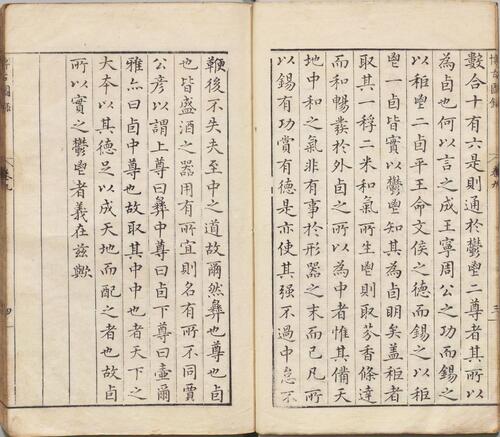 數合十有六是則通於鬱鬯二尊者其所以
為卣也何以言之成王寧周公之功而錫之
以秬鬯二卣平王命文侯之德而錫之以秬
鬯一卣皆實以鬱鬯知其為卣明矣蓋秬者
取其一稃二米和氣所生鬯則取芬香條達
而和暢發於外卣之所以為中者惟其備天
地中和之氣非有事於形器之末而已凡所
以錫有功賞有德是亦使其强不過中怠不
鞭後不失夫至中之道故爾然彝也尊也卣
也皆盛酒之器用有所宜則名有所不同賈
公彦以謂上尊曰彝中尊曰卣下尊曰壷爾
雅亦曰卣中尊也故取其中中也者天下之
大本以其德足以成天地而配之者也故卣
所以實之鬱鬯者義在兹歟
卷九
四